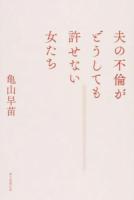 夫の不倫が
どうしても
許せない
女たち
亀山早苗